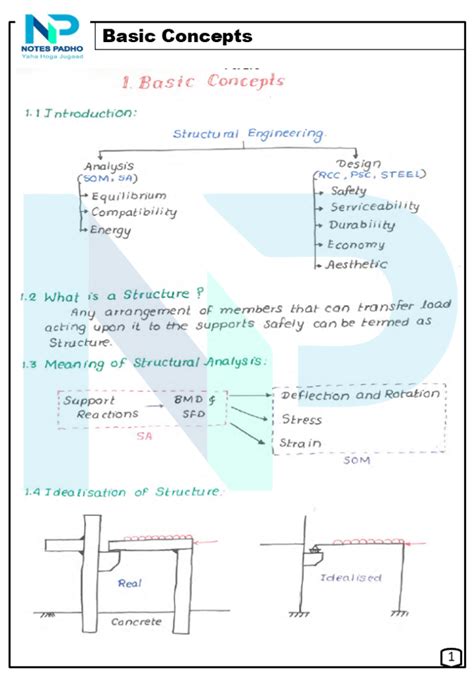 NP
NOTES PADHO
Yaha Hoga Jugaad
Basic Concepts
1. Basic Concepts
1.1 Introduction:
Structural Engineering
Analysis
(SOM, SA)
Equilibrium
Compatibility
Energy
Design
(RCC, PSC, STEEL)
Safety
Serviceability
Durability
Economy
Aesthetic
1.2 What is a Structure ?
Any arrangement of members that can transfer load
acting upon it to the supports safely can be termed as
Structure.
1.3 Meaning of Structural Analysis:
Support
Reactions
BMD &
SFD
SA
Deflection and Rotation
Stress
Strain
SOM
1.4 Idealisation of Structure:
Real
Concrete
Idealised
1